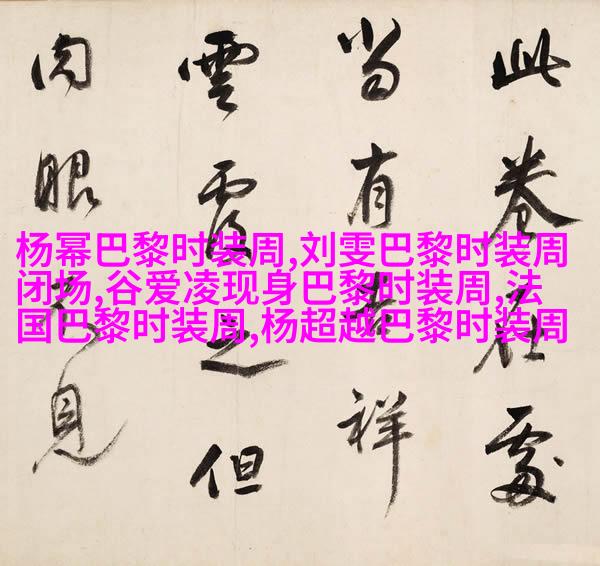 此卷在處
當有吉祥
雲覆之但
肉眼不見
杨幂巴黎时装周,刘雯巴黎时装周
闭场,谷爱凌现身巴黎时装周,法
国巴黎时装周,杨超越巴黎时装周